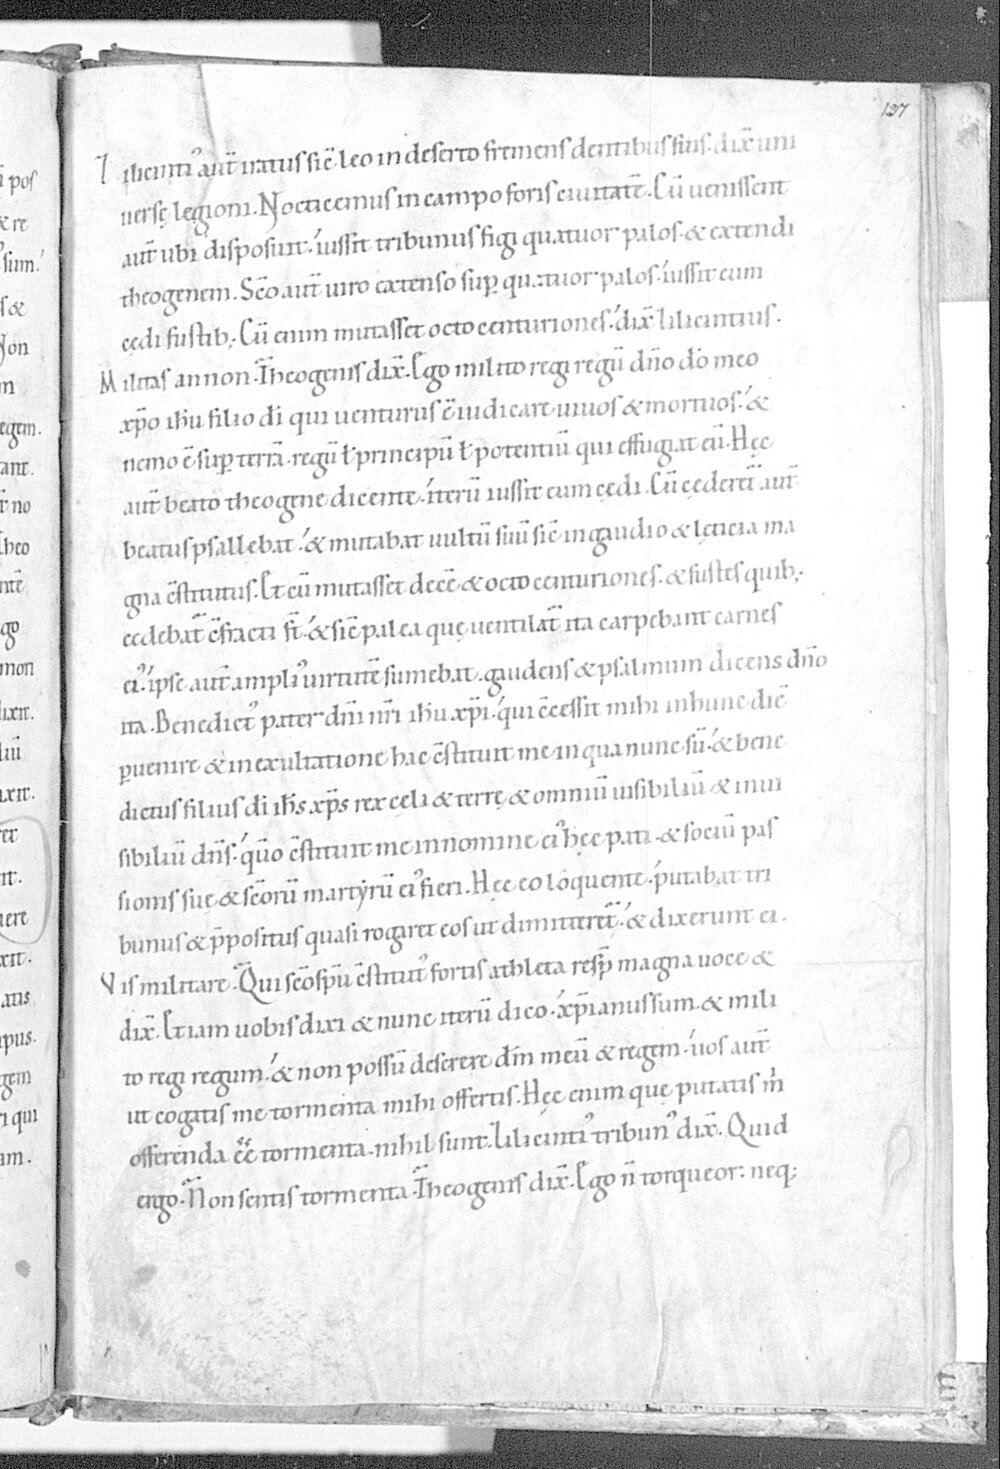 137
Ilicinti᾽ aut̄ iratus sic̄ leo in deserto fremens dentibus suis. dix̄ uni
uersę legioni. N octicemus in campo foris ciuitatē. Cū uenissent
aut̄ ubi disposuit. iussit tribunus figi quatuor palos. & extendi
theogenem. Sc̄o aut̄ uiro extenso sup̱ quatuor palos. iussit eum
cędi fustib;. Cū enim mutasset octo centuriones. dix̄ lilicintius.
Militas an non. Theogenis dix̄. Ego milito regi regū dn̄o dō meo
xp̄o ihū filio dī qui uenturus ē iudicare uiuos & mortuos. &
nemo ē sup̱ terrā. regū ł principū ł potentiū qui effugiat eū. Hęc
aut̄ beato theogene dicente. iterū iussit eum cędi. Cū cęderet̄ aut̄
beatus psallebat. & mutabat uultū suū sic̄ in gaudio & lęticia ma
gna c̄stitutus. Et cū mutasset decē & octo centuriones. & fustes quib;.
cedebat̄ c̄fracti st̄. & sic̄ palea quę uentilat̄ ita carpebant carnes
ei᾽. ipse aut̄ ampli᾽ uirtutē sumebat. gaudens & psalmum dicens dn̄o
ita. Benedict᾽ pater dn̄i nr̄i ihū xp̄i. qui c̄cessit mihi in hunc diē
p̱uenire & in exultatione hac c̄stituit me in qua nunc sū. & bene
dictus filius dī ih̄s xp̄s rex cęli & terrę & omniū uisibiliū & inui
sibiliū dn̄s. quō c̄stituit me in nomine ei᾽ hęc pati. & sociū pas
sionis suę & sc̄orū martẏrū ei᾽ fieri. Hęc eo loquente. putabat tri
bunus & p̄positus quasi rogaret eos ut dimitteret̄. & dixerunt ei.
Vis militare. Qui sc̄o sp̄u c̄stitut᾽ fortis athleta resp̄ magna uoce &
dix̄. Etiam uobis dixi & nunc iterū dico. xp̄ianus sum. & mili
to regi regum. & non possū deserere dn̄m meū & regem. uos aut̄
ut cogatis me tormenta mihi offertis. Hęc enim quę putatis m̄
offerenda ēē tormenta. nihil sunt. Lilicinti᾽ tribun᾽ dix̄. Quid
ergo. Non sentis tormenta. Theogenis dix̄. Ego n̄ torqueor. neq;